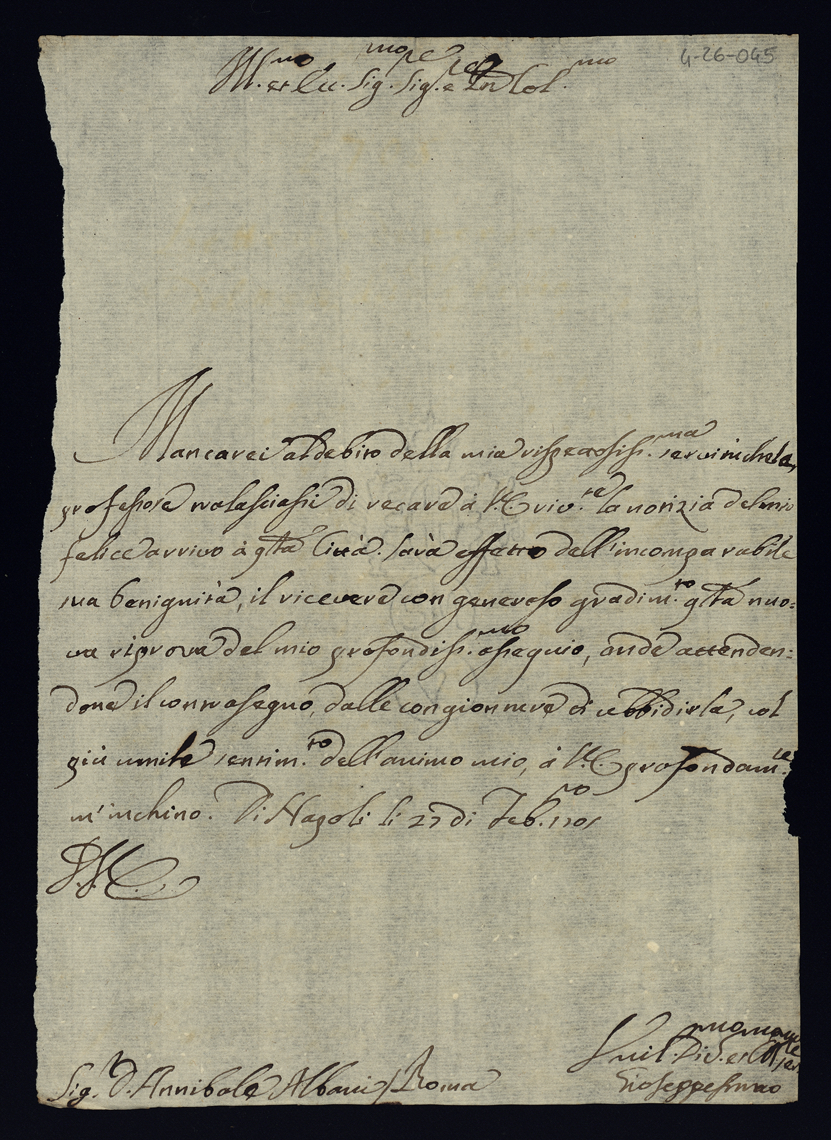 4-26-045
Ill.mo et Ecc.mo Sig. Sig.re e P.ron Col.mo
Mancarei al debito della mia rispettosiss.ma servitù che la
professo se tralasciassi di recare à V.E. riv.te la notizia del mio
felice arrivo à q.sta Città. Sarà effetto dell'incomparabile
sua benignità, il ricevere con generoso gradim.to q.sta nuo=
va riprova del mio profondiss.mo ossequio, onde attenden=
done il contrasegno dalle congionture di ubbidirla, col
più umile sentim.to dell'animo mio, à V.E. profondam.te
m'inchino. Di Napoli li 27 di Feb.ro 1701
D.V.E.
Sig.r D. Annibale Albani / Roma
Giuseppe